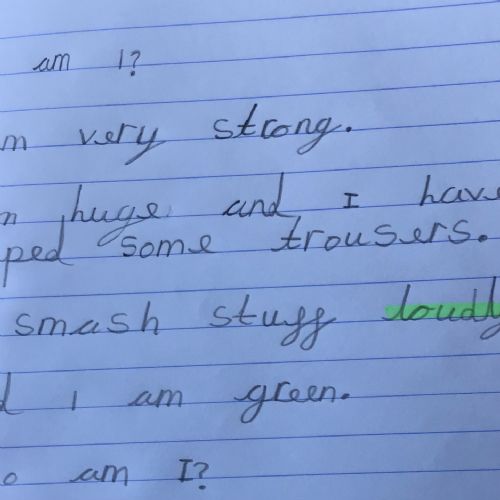 am I?
m very strong.
m huge and I have
ped some trousers.
smash stuff loudly
d I am green.
o am I?